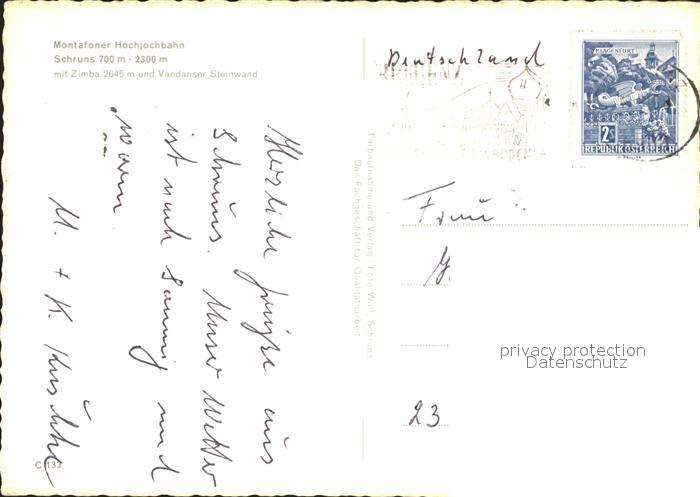 Montafoner Hochjochbahn
Schruns 700 m - 2300 m
mit Zimba 2645 m und Vandanser Steinwand
Herzliche Grüße aus
Schruns. Unser Wetter
ist noch sonnig und
warm.
U. + K.
C 133
Farbaufnahme und Verlag Foto Wolf, Schruns
Das Fachgeschäft für Qualitätsarbeit
Deutschland
KLAGENFURT
2 S
REPUBLIK ÖSTERREICH
Frau
privacy protection
Datenschutz
23